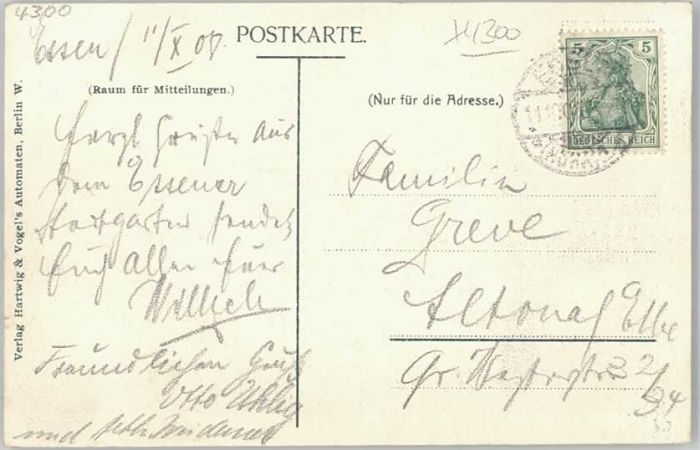 4300
Essen / 11/X 08.
POSTKARTE.
4300
(Raum für Mitteilungen.)
(Nur für die Adresse.)
5 5
DEUTSCHES REICH
Verlag Hartwig & Vogel's Automaten, Berlin W.
Herzl. Grüße aus
dem Essener
Stadtgarten sendet
Euch allen Euer
Willich
Freundlichen Gruß
Otto Uhlig
und
Familie
Greve
Altona/ Elbe
Gr.